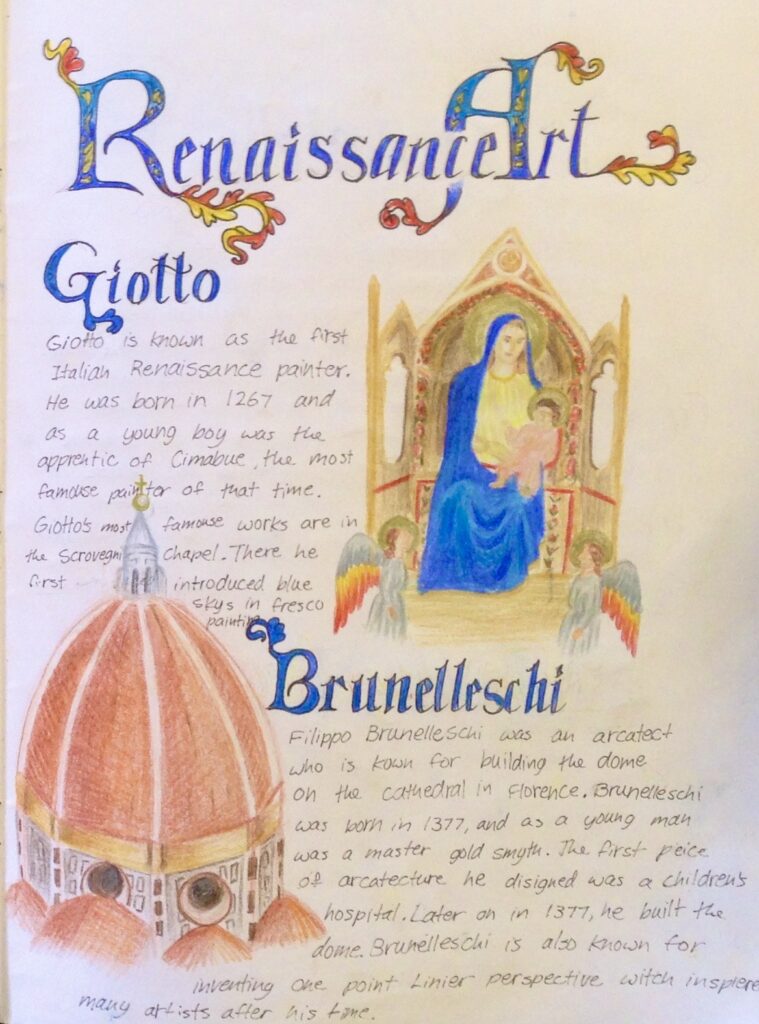 Renaissance Art
Giotto
Giotto is known as the first
Italian Renaissance painter.
He was born in 1267 and
as a young boy was the
apprentic of Cimabue, the most
famouse painter of that time.
Giotto's most famouse works are in
the Scrovegni chapel. There he
first introduced blue
skys in fresco
painting
Brunelleschi
Filippo Brunelleschi was an arcatect
who is kown for building the dome
on the cathedral in Florence. Brunelleschi
was born in 1377, and as a young man
was a master gold smyth. The first peice
of arcatecture he disigned was a children's
hospital. Later on in 1377, he built the
dome. Brunelleschi is also known for
inventing one point Linier perspective witch inspiere
many artists after his time.